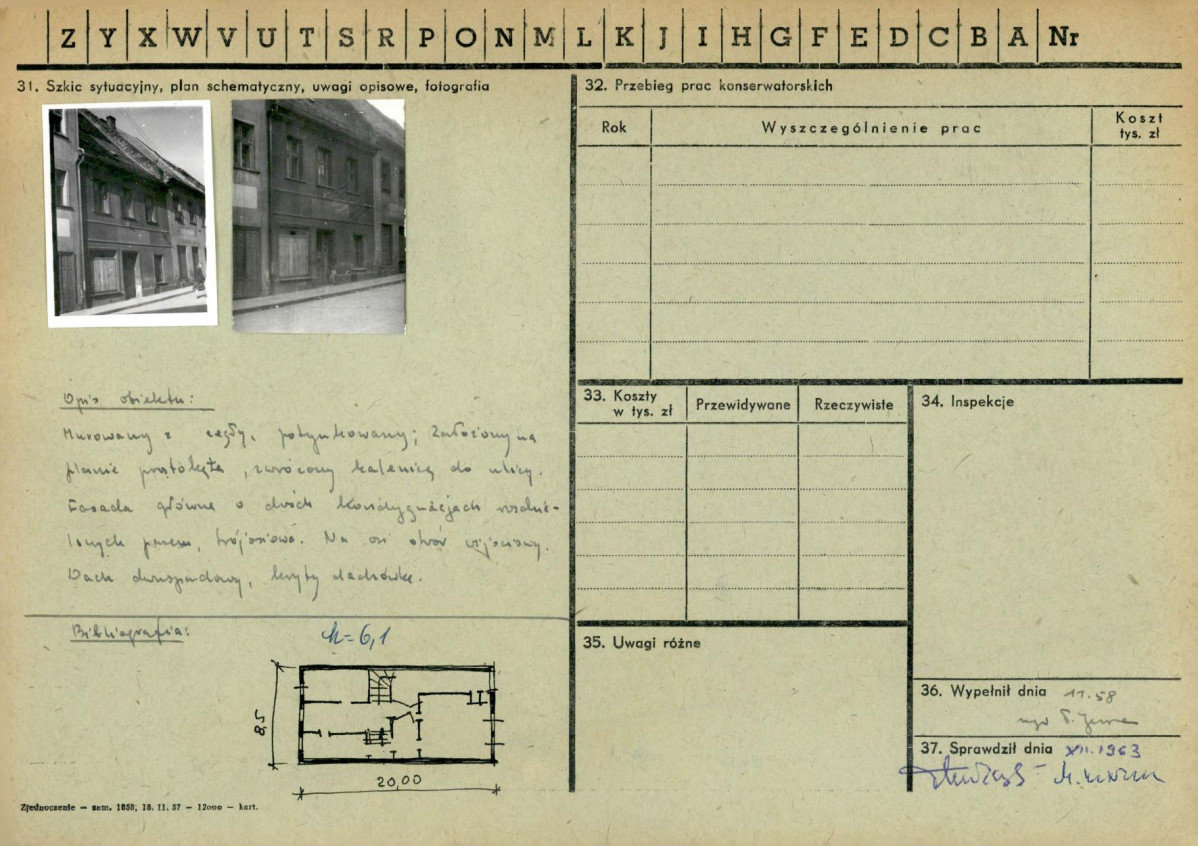 Z Y X W V U T S R P O N M L K J I H G F E D C B A Nr
31. Szkic sytuacyjny, plan schematyczny, uwagi opisowe, fotografia
Opis obiektu:
Murowany z cegły, potynkowany; Założony na
planie prostokąta, zwrócony kalenicą do ulicy.
Fasada główna o dwóch kondygnacjach rozdzie-
lonych pasem, trójosiowa. Na osi otwór wejściowy.
Dach dwuspadowy, kryty dachówką.
Bibliografia:
h=6,1
8,5
20,00
Zjednoczenie — zam. 1858, 18. 11. 57 — 12000 — kart.
32. Przebieg prac konserwatorskich
Rok
Wyszczególnienie prac
Koszt
tys. zł
33. Koszty
w tys. zł
Przewidywane
Rzeczywiste
34. Inspekcje
35. Uwagi różne
36. Wypełnił dnia 11.58
mgr
37. Sprawdził dnia XII.1963